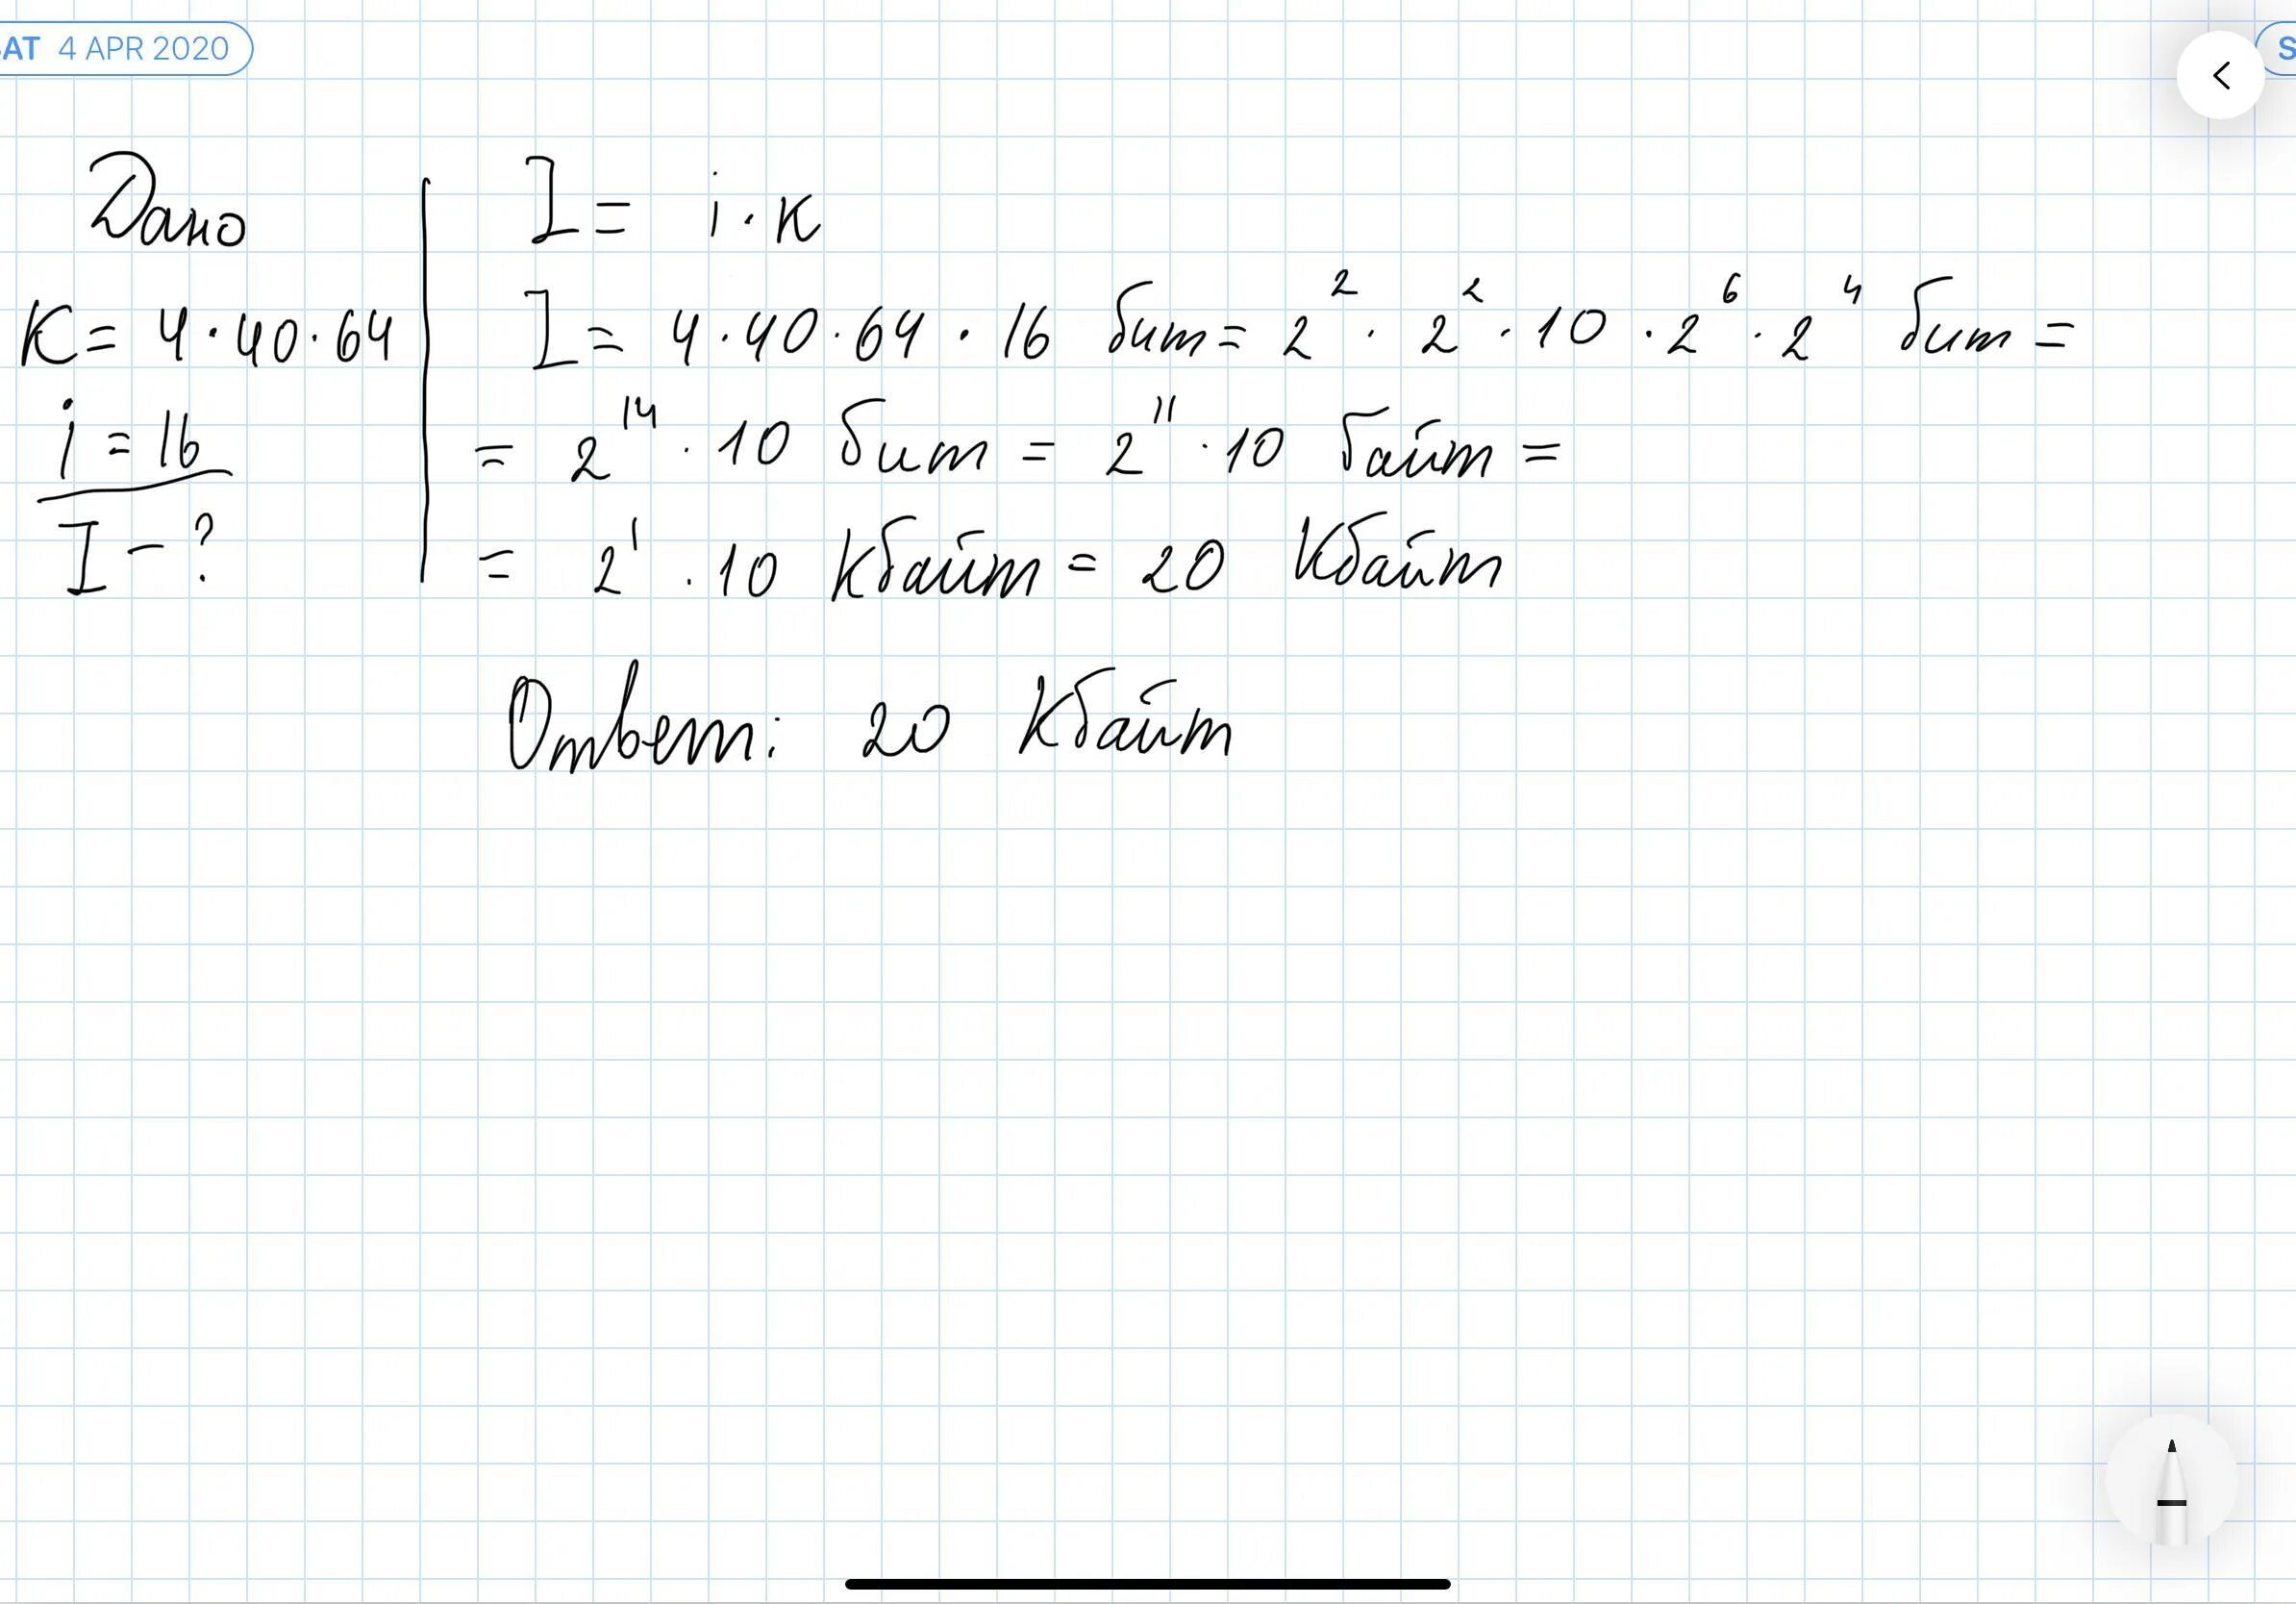 SAT 4 APR 2020
S
Дано
K = 4·40·64
i = 16
I – ?
I = i·к
I = 4·40·64·16 бит = 2²·2²·10·2⁶·2⁴ бит =
= 2¹⁴·10 бит = 2¹¹·10 байт =
= 2¹·10 Кбайт = 20 Кбайт
Ответ: 20 Кбайт